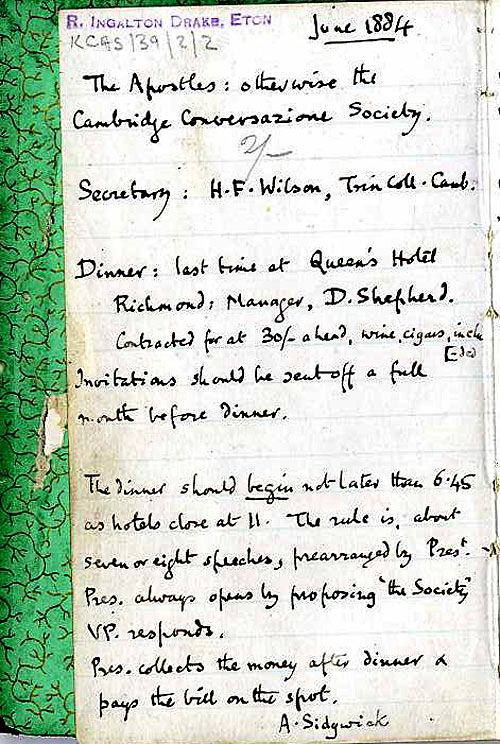 R. INGALTON DRAKE, ETON
KCAS/39/2/2
June 1884.
The Apostles: otherwise the
Cambridge Conversazione Society.
2/-
Secretary: H.F. Wilson, Trin Coll. Camb.
Dinner: last time at Queen's Hotel
Richmond: Manager, D. Shepherd.
Contracted for at 30/- a head, wine, cigars,
Invitations should be sent off a full
month before dinner.
The dinner should begin not later than 6.45
as hotels close at 11. The rule is, about
seven or eight speeches, prearranged by Prest.
Pres. always opens by proposing "the Society"
VP. responds.
Pres. collects the money after dinner &
pays the bill on the spot.
A. Sidgwick